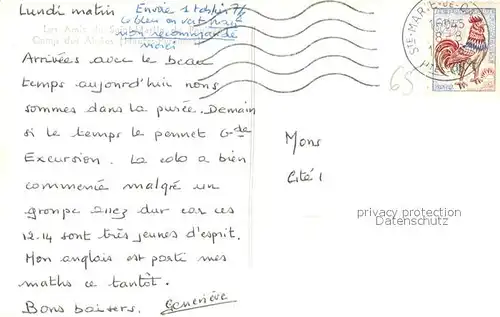 Lundi matin
Envoie 1 t-shirt 7/8
le bleu ou vert
recommandé
merci
Les Amis de
Camp des
Arrivées avec le beau
temps aujourd'hui nous
sommes dans la purée. Demain
si le temps le permet Gde
Excursion. La colo a bien
commencé malgré un
groupe assez dur car ces
12-14 sont très jeunes d'esprit.
Mon anglais est parti mes
maths ce tantôt.
Bons baisers. Geneviève
STE-MARIE-DE-C
65
Mons
Cité 1
privacy protection
Datenschutz